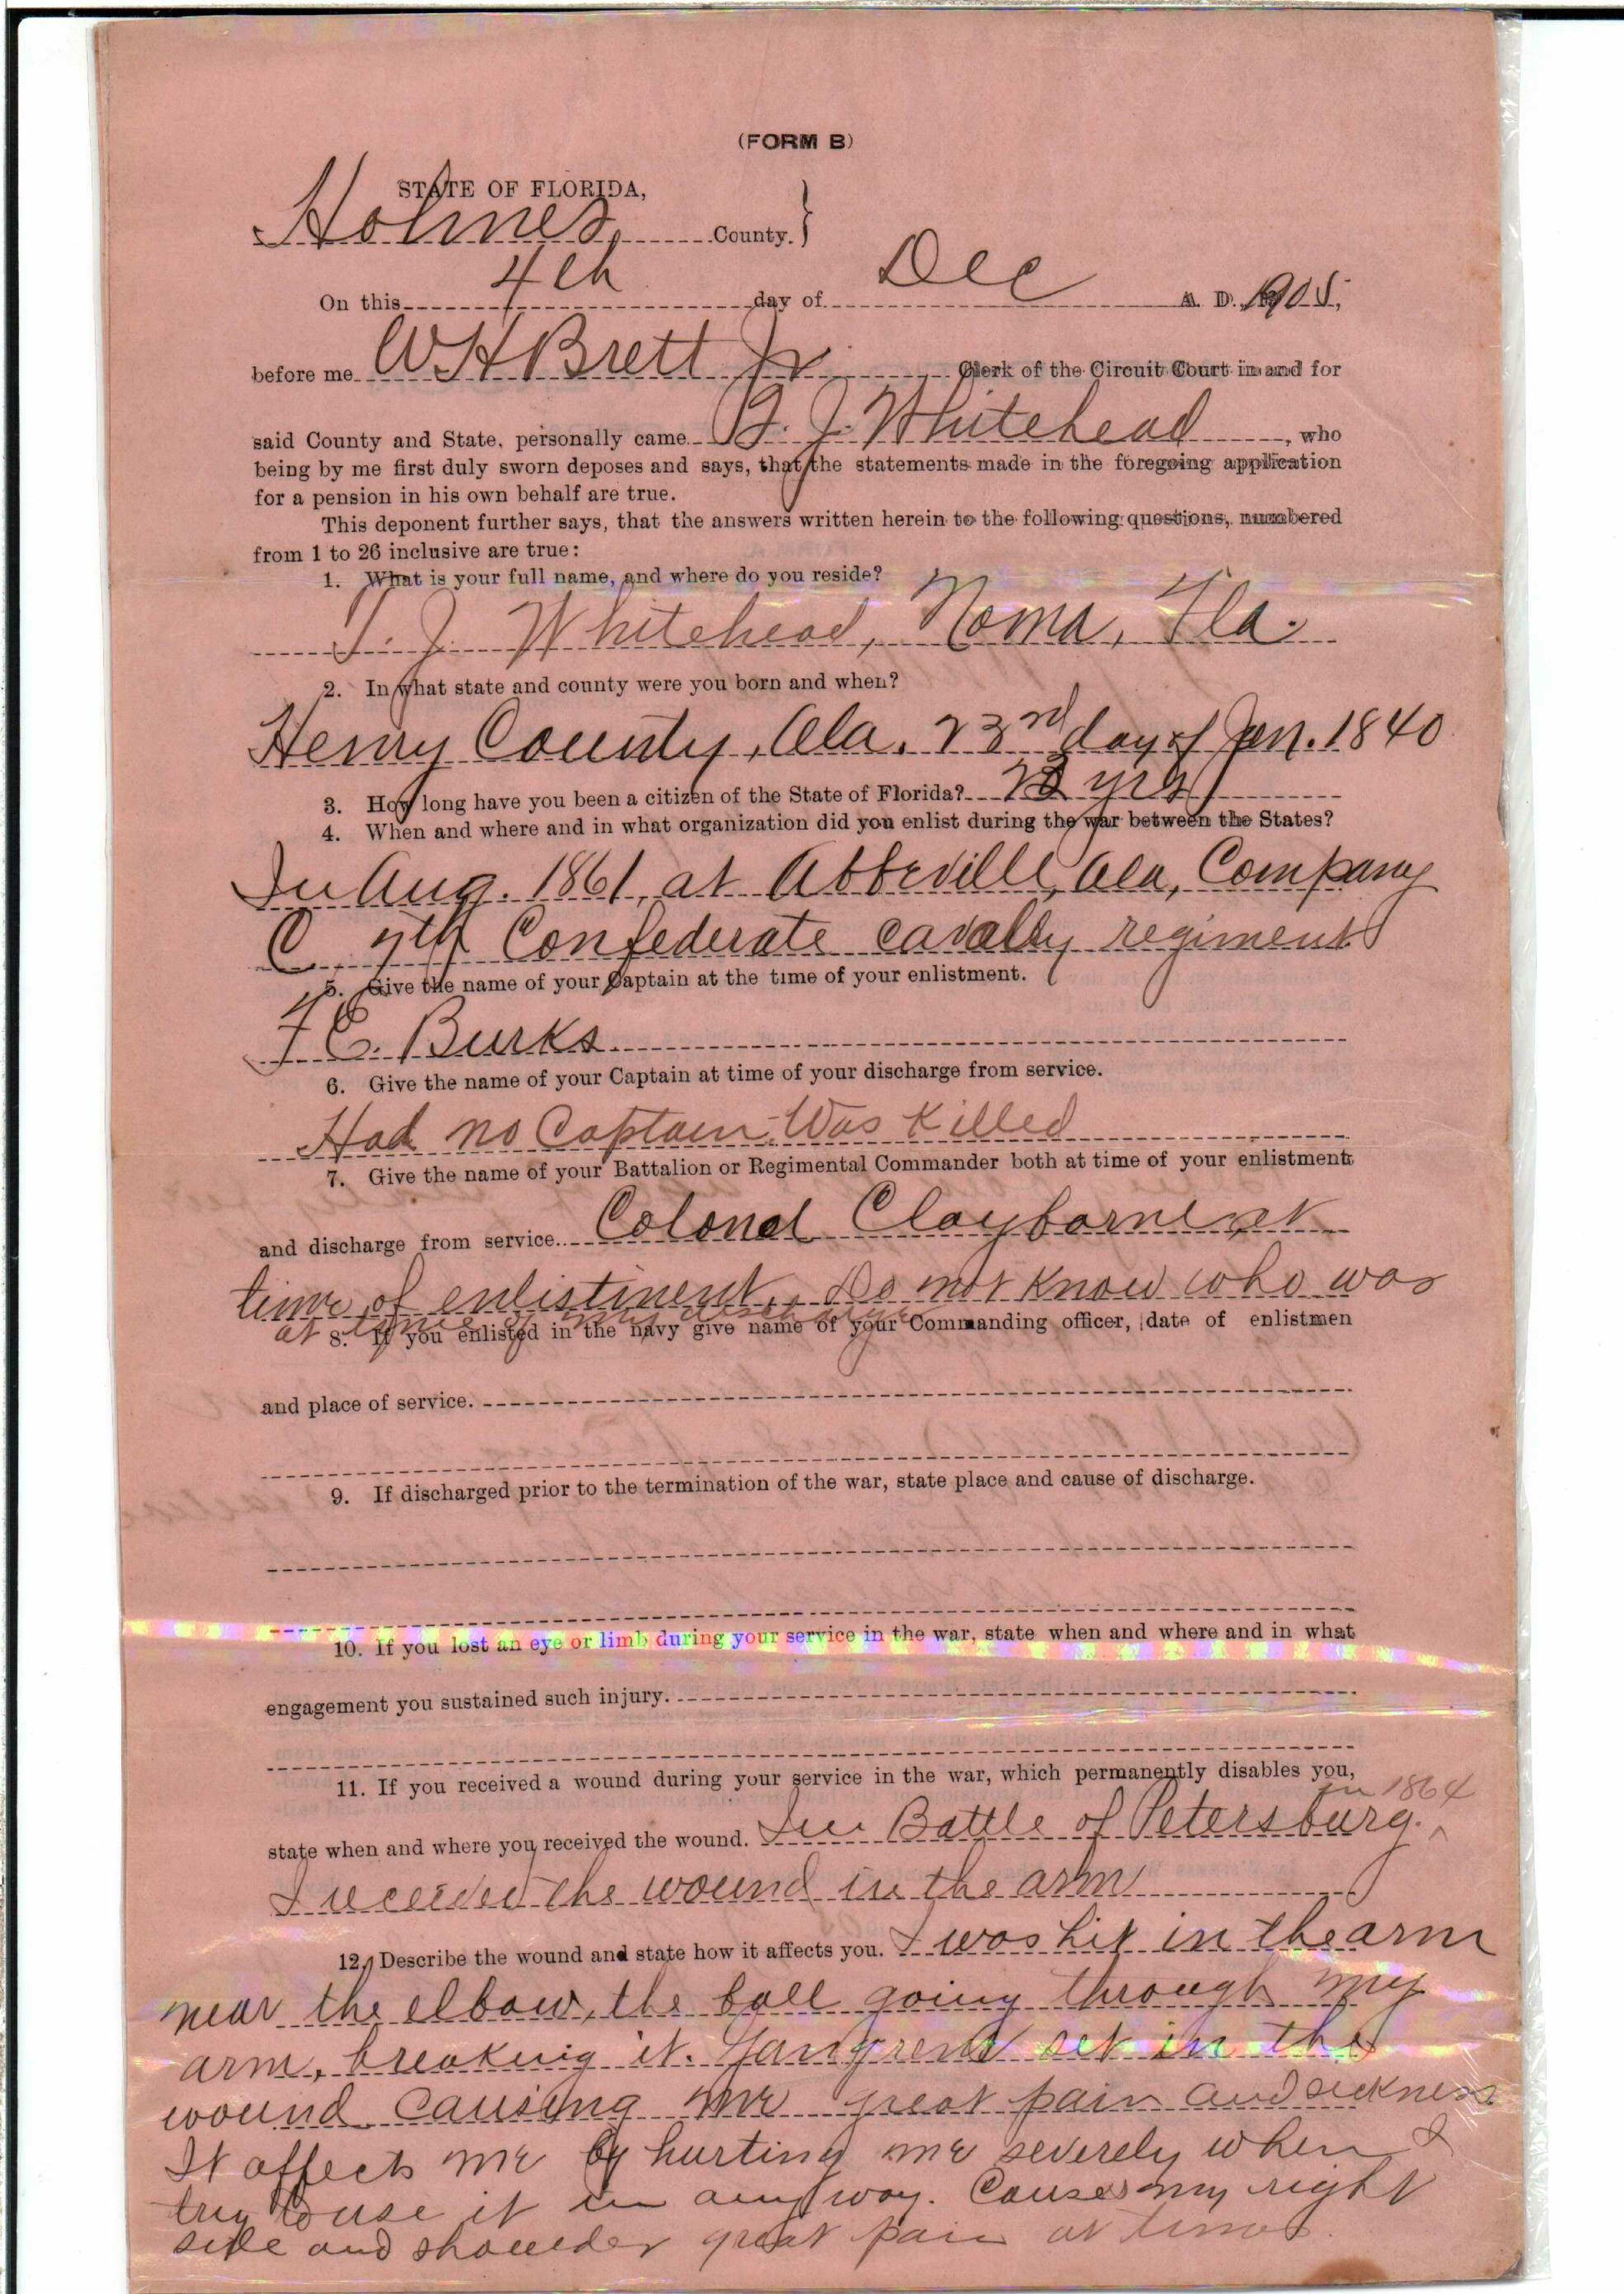 (FORM B)
STATE OF FLORIDA,
Holmes County.
On this 4th day of Dec A. D. 1905,
before me W H Brett Jr Clerk of the Circuit Court in and for
said County and State, personally came J. Whitehead, who
being by me first duly sworn deposes and says, that the statements made in the foregoing application
for a pension in his own behalf are true.
This deponent further says, that the answers written herein to the following questions, numbered
from 1 to 26 inclusive are true:
1. What is your full name, and where do you reside?
J. Whitehead, Noma, Fla.
2. In what state and county were you born and when?
Henry County, Ala. 23rd day of Jan. 1840
3. How long have you been a citizen of the State of Florida? yrs
4. When and where and in what organization did you enlist during the war between the States?
In Aug. 1861, at Abbeville, Ala, Company
C 7th Confederate cavalry regiment
5. Give the name of your Captain at the time of your enlistment.
F E. Burks
6. Give the name of your Captain at time of your discharge from service.
Had no Captain. Was Killed
7. Give the name of your Battalion or Regimental Commander both at time of your enlistment
and discharge from service. Colonel Clayborne at
time of enlistment. Do not know who was
at time of my discharge
8. If you enlisted in the navy give name of your Commanding officer, date of enlistmen
and place of service.
9. If discharged prior to the termination of the war, state place and cause of discharge.
10. If you lost an eye or limb during your service in the war, state when and where and in what
engagement you sustained such injury.
11. If you received a wound during your service in the war, which permanently disables you,
state when and where you received the wound. In Battle of Petersburg. in 1864
I received the wound in the arm
12. Describe the wound and state how it affects you. I was hit in the arm
near the elbow, the ball going through my
arm, breaking it. Gangrene set in the
wound causing me great pain and sickness
It affects me by hurting me severely when I
try to use it in any way. Causes my right
side and shoulder great pain at times.